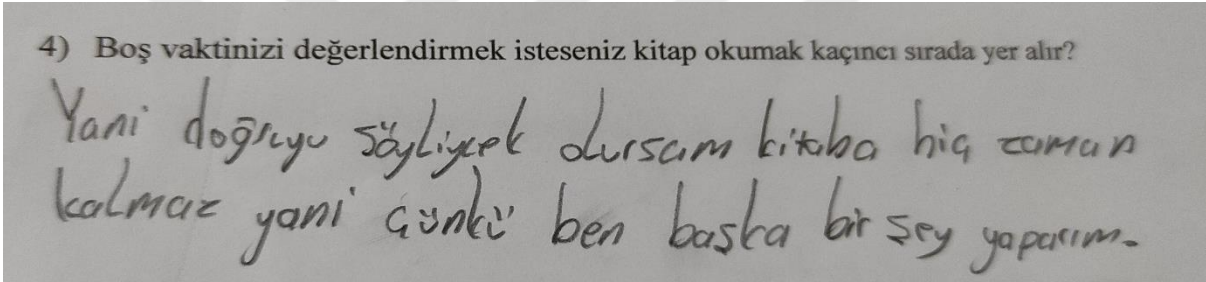 4) Boş vaktinizi değerlendirmek isteseniz kitap okumak kaçıncı sırada yer alır?
Yani doğruyu söyliyecek olursam kitaba hiç zaman
kalmaz yani çünkü ben başka bir şey yaparım.